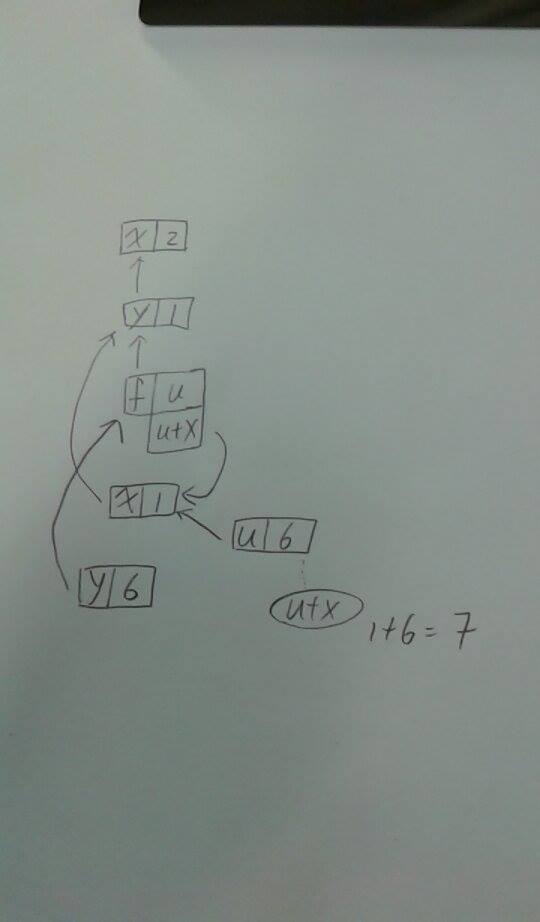 x 2
y 1
f u
u+x
x 1
u 6
y 6
u+x
1+6=7